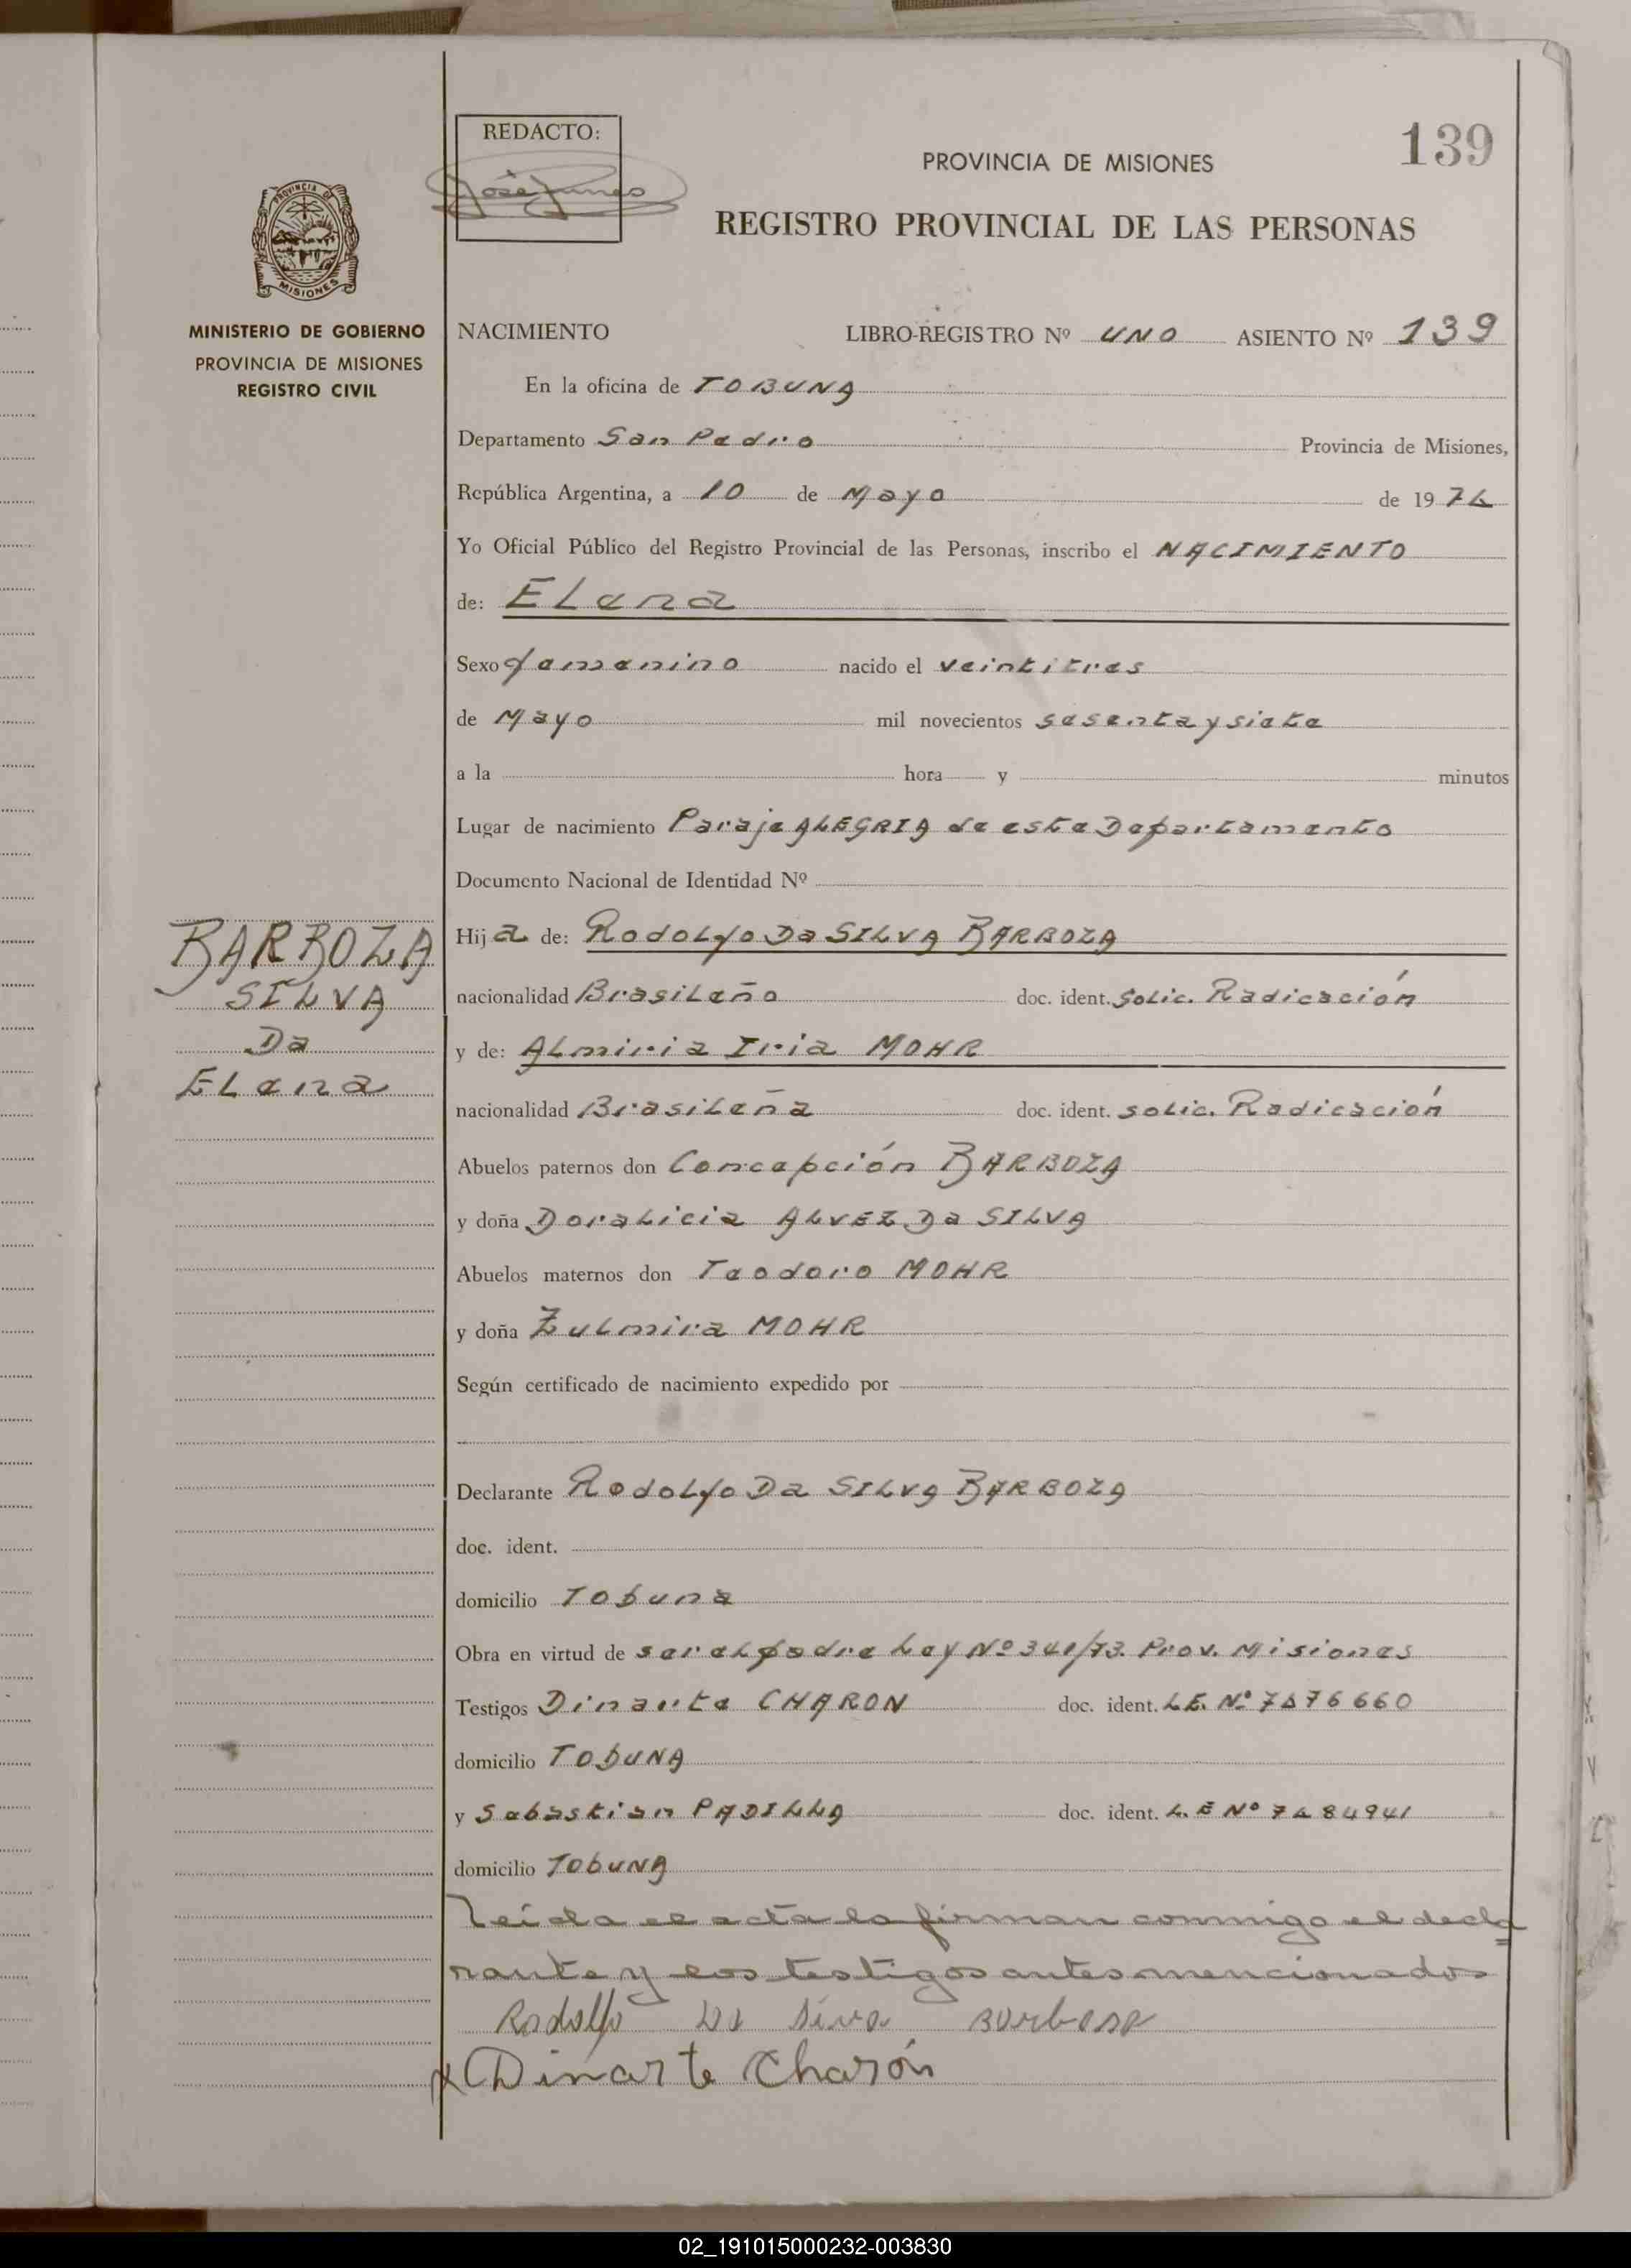 REDACTO:
139
PROVINCIA DE MISIONES
REGISTRO PROVINCIAL DE LAS PERSONAS
PROVINCIA DE
MISIONES
MINISTERIO DE GOBIERNO
PROVINCIA DE MISIONES
REGISTRO CIVIL
NACIMIENTO LIBRO-REGISTRO Nº UNO ASIENTO Nº 139
En la oficina de TOBUNA
Departamento San Pedro Provincia de Misiones,
República Argentina, a 10 de Mayo de 1974
Yo Oficial Público del Registro Provincial de las Personas, inscribo el NACIMIENTO
de: ELena
Sexo femenino nacido el veintitres
de Mayo mil novecientos sesenta y siete
a la hora y minutos
Lugar de nacimiento Paraje ALEGRIA de este Departamento
Documento Nacional de Identidad Nº
Hija de: Rodolfo Da SILVA BARBOZA
nacionalidad Brasileño doc. ident. Solic. Radicación
y de: ALmiria Iria MOHR
nacionalidad Brasileña doc. ident. solic. Radicación
Abuelos paternos don Concepción BARBOZA
y doña Doralicia ALVEZ Da SILVA
Abuelos maternos don Teodoro MOHR
y doña Zulmira MOHR
Según certificado de nacimiento expedido por
Declarante Rodolfo Da SILVA BARBOZA
doc. ident.
domicilio Tobuna
Obra en virtud de ser el padre Ley Nº 341/73. Prov. Misiones
Testigos Dinarte CHARON doc. ident. L.E. Nº 7476660
domicilio TObUNA
y Sebastian PADILLA doc. ident. L.E Nº 7484941
domicilio TObUNA
Leída el acta la firman conmigo el decla
rante y los testigos antes mencionados
Rodolfo Da Silva Barbosa
x Dinarte Charón
BARBOZA
SILVA
Da
ELena
02_191015000232-003830